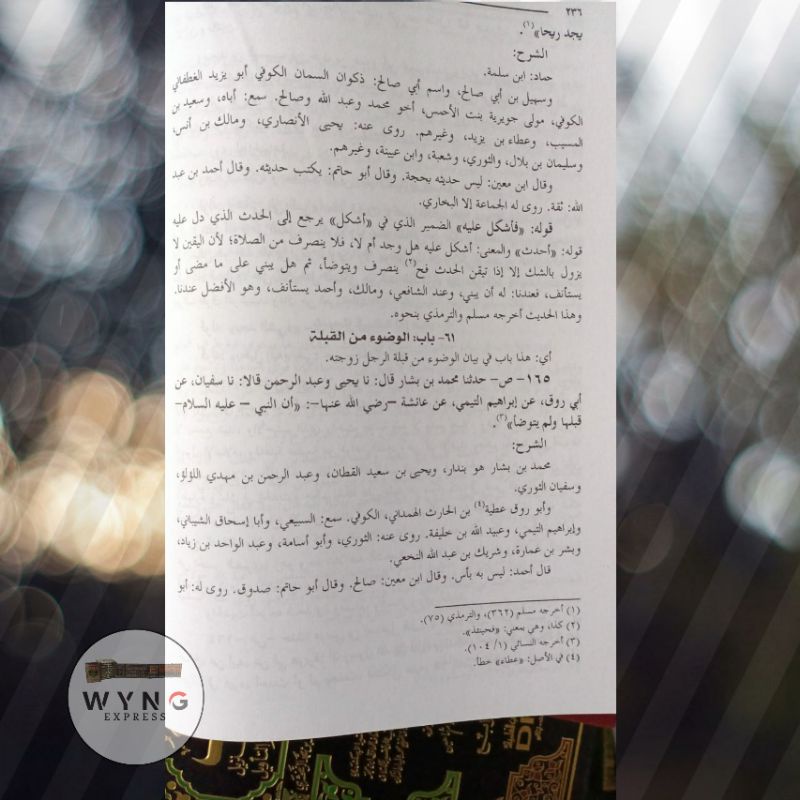 ٢٣٦
يجد ريحا»(١).
الشرح:
حماد: ابن سلمة.
وسهيل بن أبي صالح، واسم أبي صالح: ذكوان السمان الكوفي أبو يزيد الغطفاني
الكوفي، مولى جويرية بنت الأحمس، أخو محمد وعبد الله وصالح. سمع: أباه، وسعيد بن
المسيب، وعطاء بن يزيد، وغيرهم. روى عنه: يحيى الأنصاري، ومالك بن أنس،
وسليمان بن بلال، والثوري، وشعبة، وابن عيينة، وغيرهم.
وقال ابن معين: ليس حديثه بحجة. وقال أبو حاتم: يكتب حديثه. وقال أحمد بن عبد
الله: ثقة. روى له الجماعة إلا البخاري.
قوله: «فأشكل عليه» الضمير الذي في «أشكل» يرجع إلى الحدث الذي دل عليه
قوله: «أحدث» والمعنى: أشكل عليه هل وجد أم لا، فلا ينصرف من الصلاة؛ لأن اليقين لا
يزول بالشك إلا إذا تيقن الحدث فح(٢) ينصرف ويتوضأ، ثم هل يبني على ما مضى أو
يستأنف، فعندنا: له أن يبني، وعند الشافعي، ومالك، وأحمد يستأنف، وهو الأفضل عندنا.
وهذا الحديث أخرجه مسلم والترمذي بنحوه.
٦١- باب: الوضوء من القبلة
أي: هذا باب في بيان الوضوء من قبلة الرجل زوجته.
١٦٥- ص- حدثنا محمد بن بشار قال: نا يحيى وعبد الرحمن قالا: نا سفيان، عن
أبي روق، عن إبراهيم التيمي، عن عائشة –رضي الله عنها–: «أن النبي – عليه السلام–
قبلها ولم يتوضأ»(٣).
الشرح:
محمد بن بشار هو بندار، ويحيى بن سعيد القطان، وعبد الرحمن بن مهدي اللؤلؤ،
وسفيان الثوري.
وأبو روق عطية(٤) بن الحارث الهمداني، الكوفي. سمع: السبيعي، وأبا إسحاق الشيباني،
وإبراهيم التيمي، وعبيد الله بن خليفة. روى عنه: الثوري، وأبو أسامة، وعبد الواحد بن زياد،
وبشر بن عمارة، وشريك بن عبد الله النخعي.
قال أحمد: ليس به بأس. وقال ابن معين: صالح. وقال أبو حاتم: صدوق. روى له: أبو
(١) أخرجه مسلم (٣٦٢)، والترمذي (٧٥).
(٢) كذا، وهي بمعني: «فحينئذ».
(٣) أخرجه النسائي (١/ ١٠٤).
(٤) في الأصل: «عطاء» خطأ.
WYNG
EXPRESS